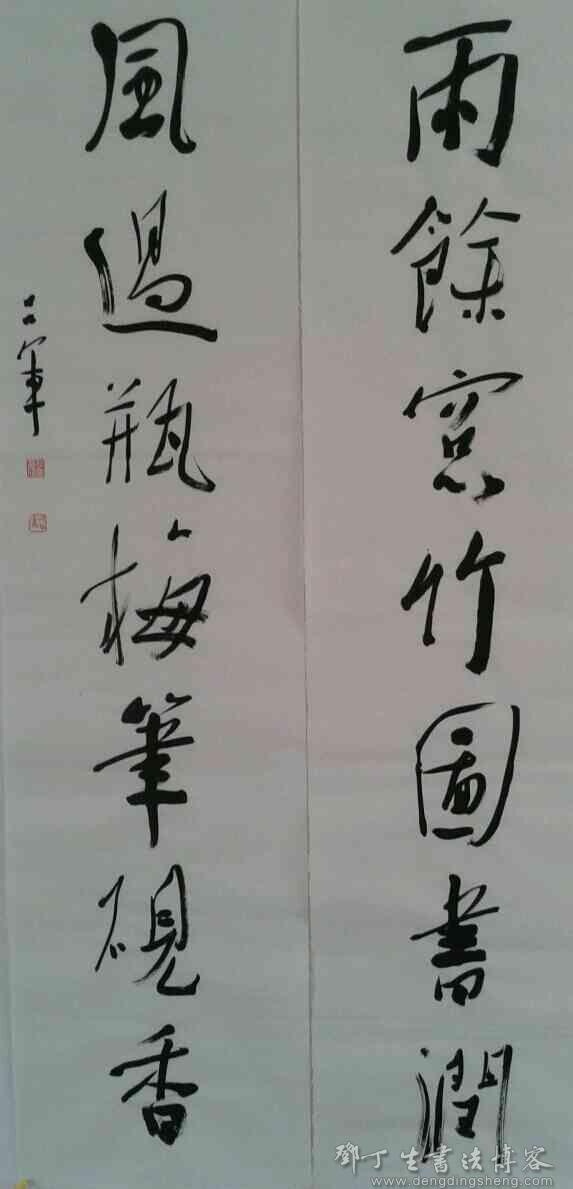 雨餘窓竹圖書潤
風過瓶梅筆硯香
鄧丁生書法博客
www.dengdingsheng.com